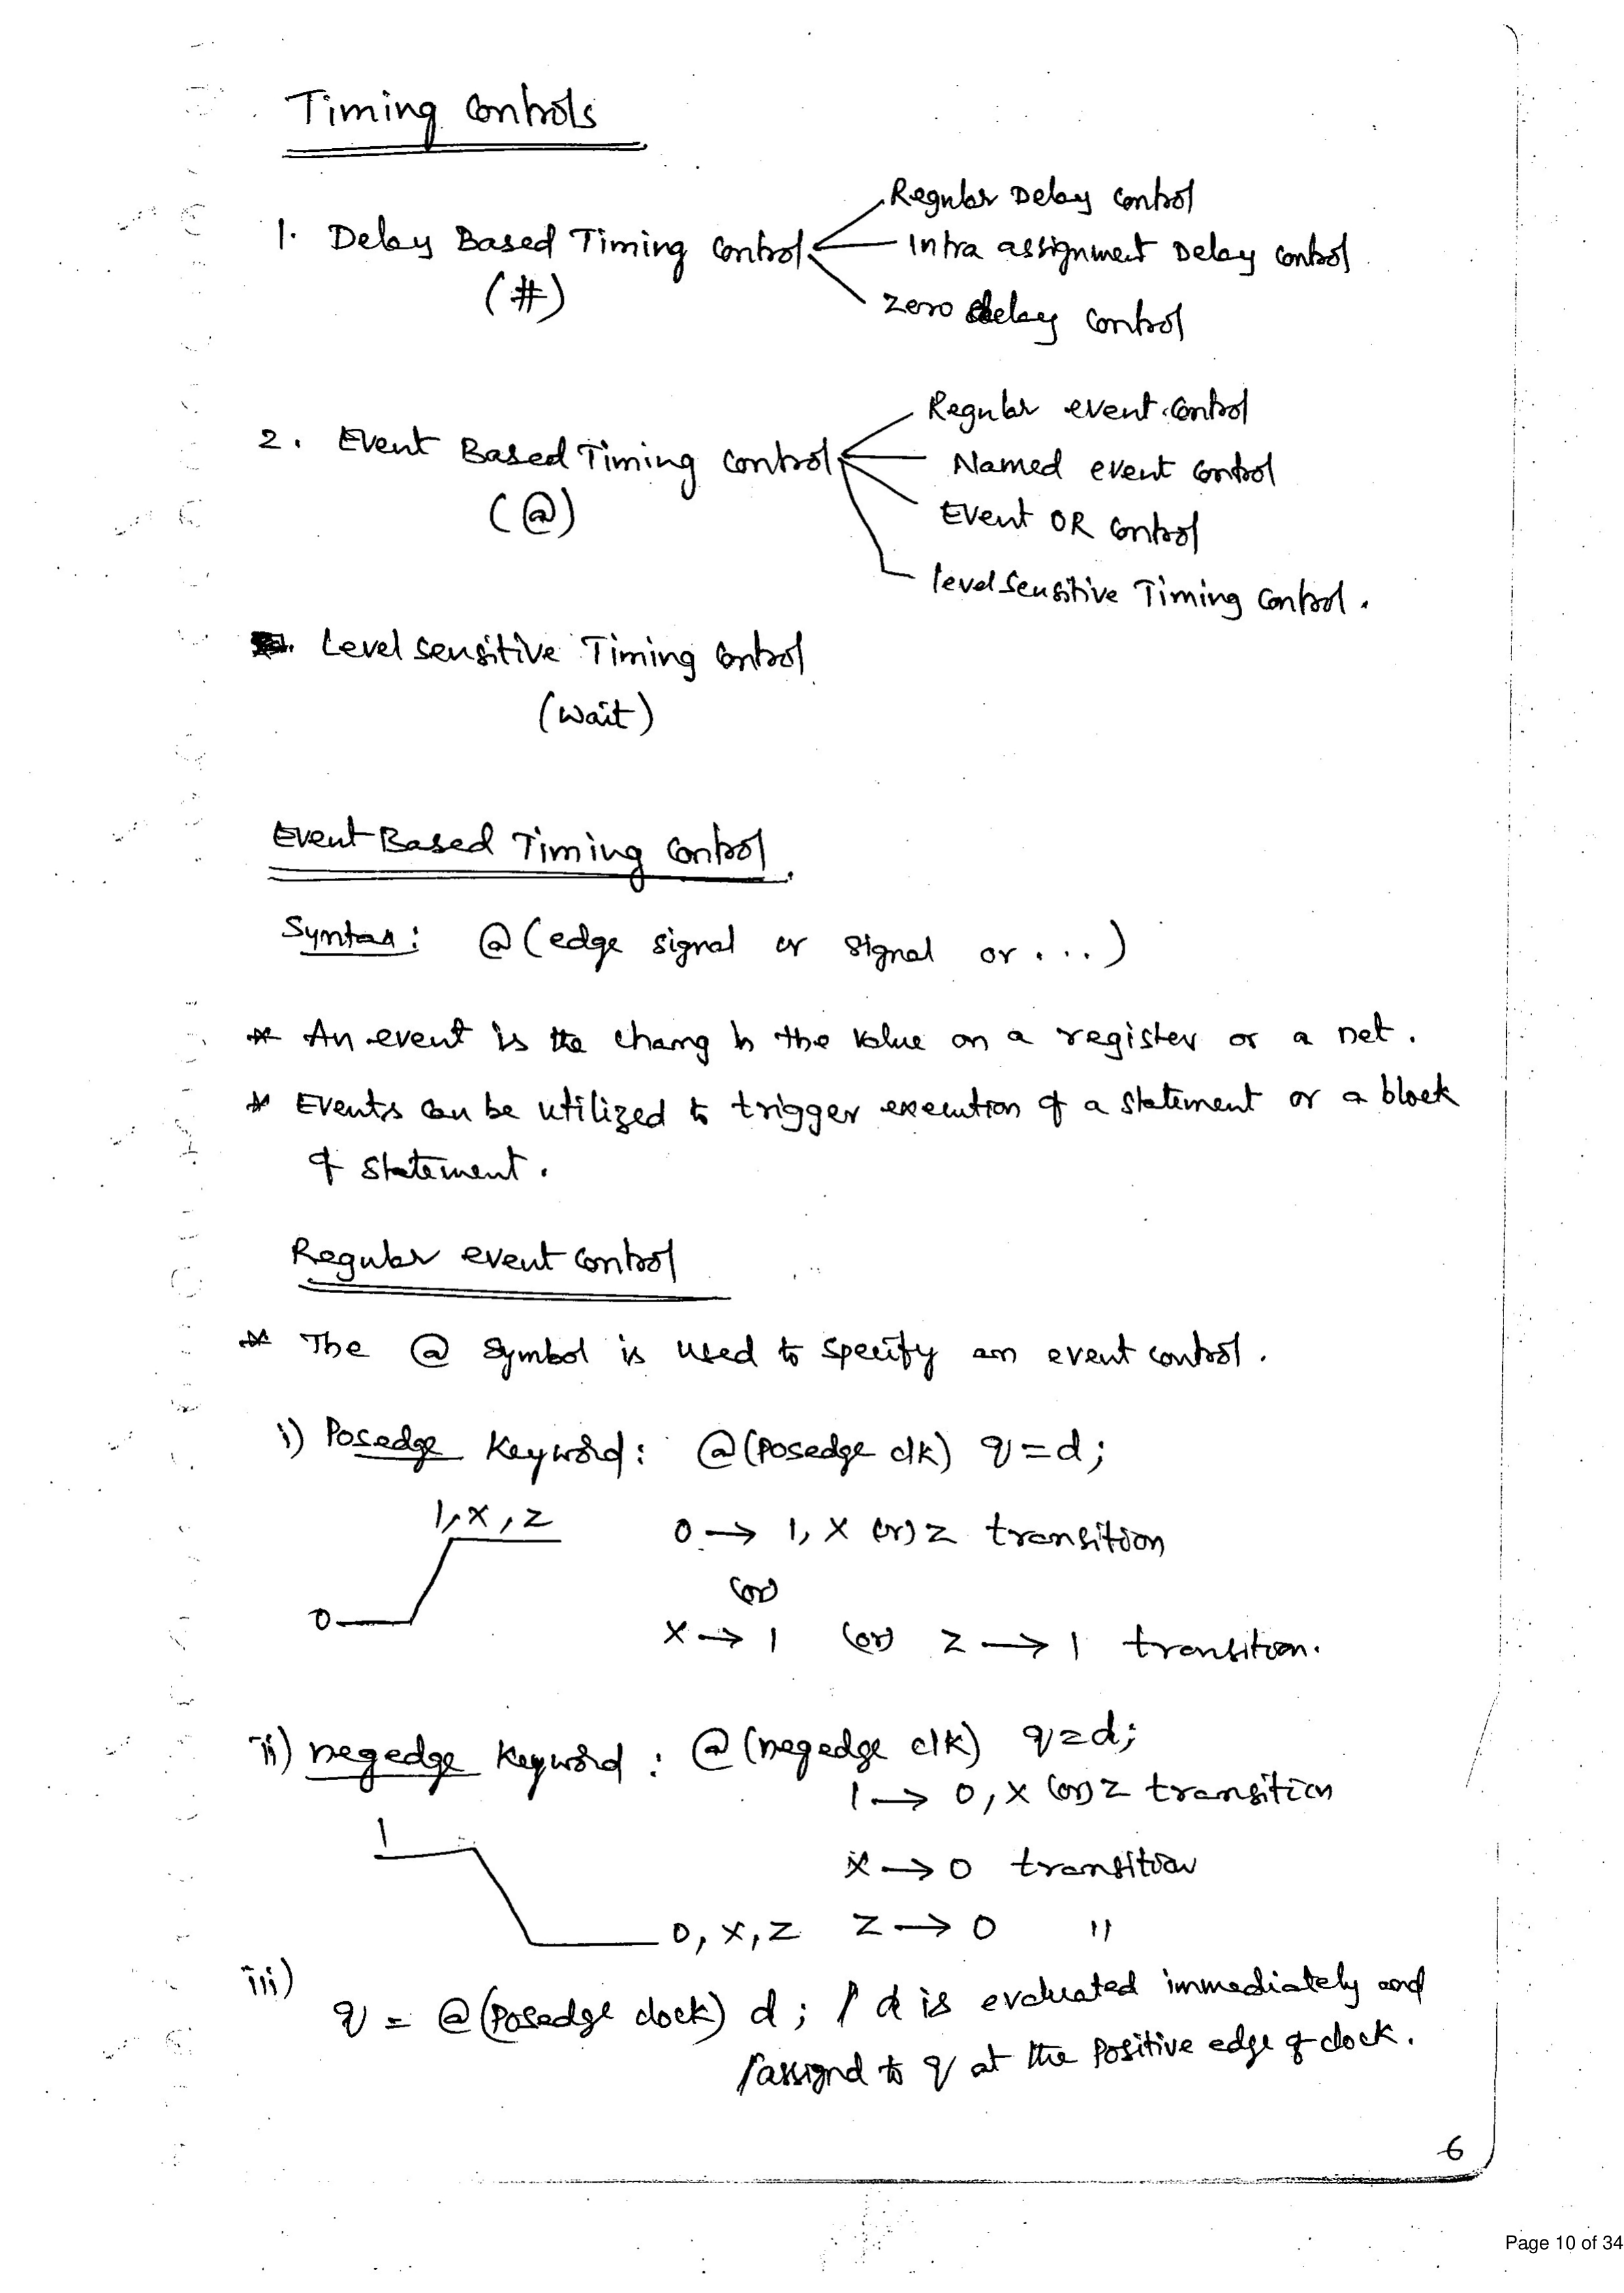 Timing Controls
Regular Delay Control
1. Delay Based Timing Control
Intra assignment Delay Control
(#)
Zero delay Control
Regular event control
2. Event Based Timing Control
Named event control
(@)
Event OR Control
level sensitive Timing control.
Level sensitive Timing Control
(wait)
Event Based Timing Control.
Syntax: @(edge signal or signal or ...)
* An event is the chang in the value on a register or a net.
* Events can be utilized to trigger execution of a statement or a block
of statement.
Regular event control
* The @ symbol is used to specify an event control.
i) Posedge Keyword: @(posedge clk) q=d;
1, x, z
0 → 1, x (or) z transition
(or)
0
x → 1 (or) z → 1 transition.
ii) negedge Keyword: @(negedge clk) q=d;
1 → 0, x (or) z transition
1
x → 0 transition
0, x, z
z → 0 "
iii)
q = @(posedge clock) d; / d is evaluated immediately and
/ assignd to q at the positive edge of clock.
6
Page 10 of 34